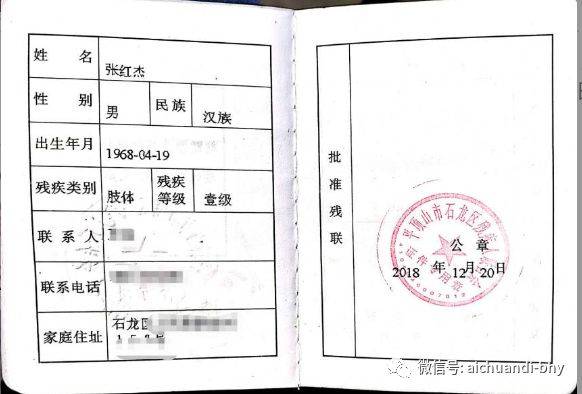 姓 名 张红杰
性 别 男 民族 汉族
出生年月 1968-04-19
残疾类别 肢体 残疾等级 壹级
联 系 人
联系电话
家庭住址 石龙区
批准残联
平顶山市石龙区残疾人联合会
证件专用章
公 章
2018 年 12月 20日
微信号: aichuandi-bhy